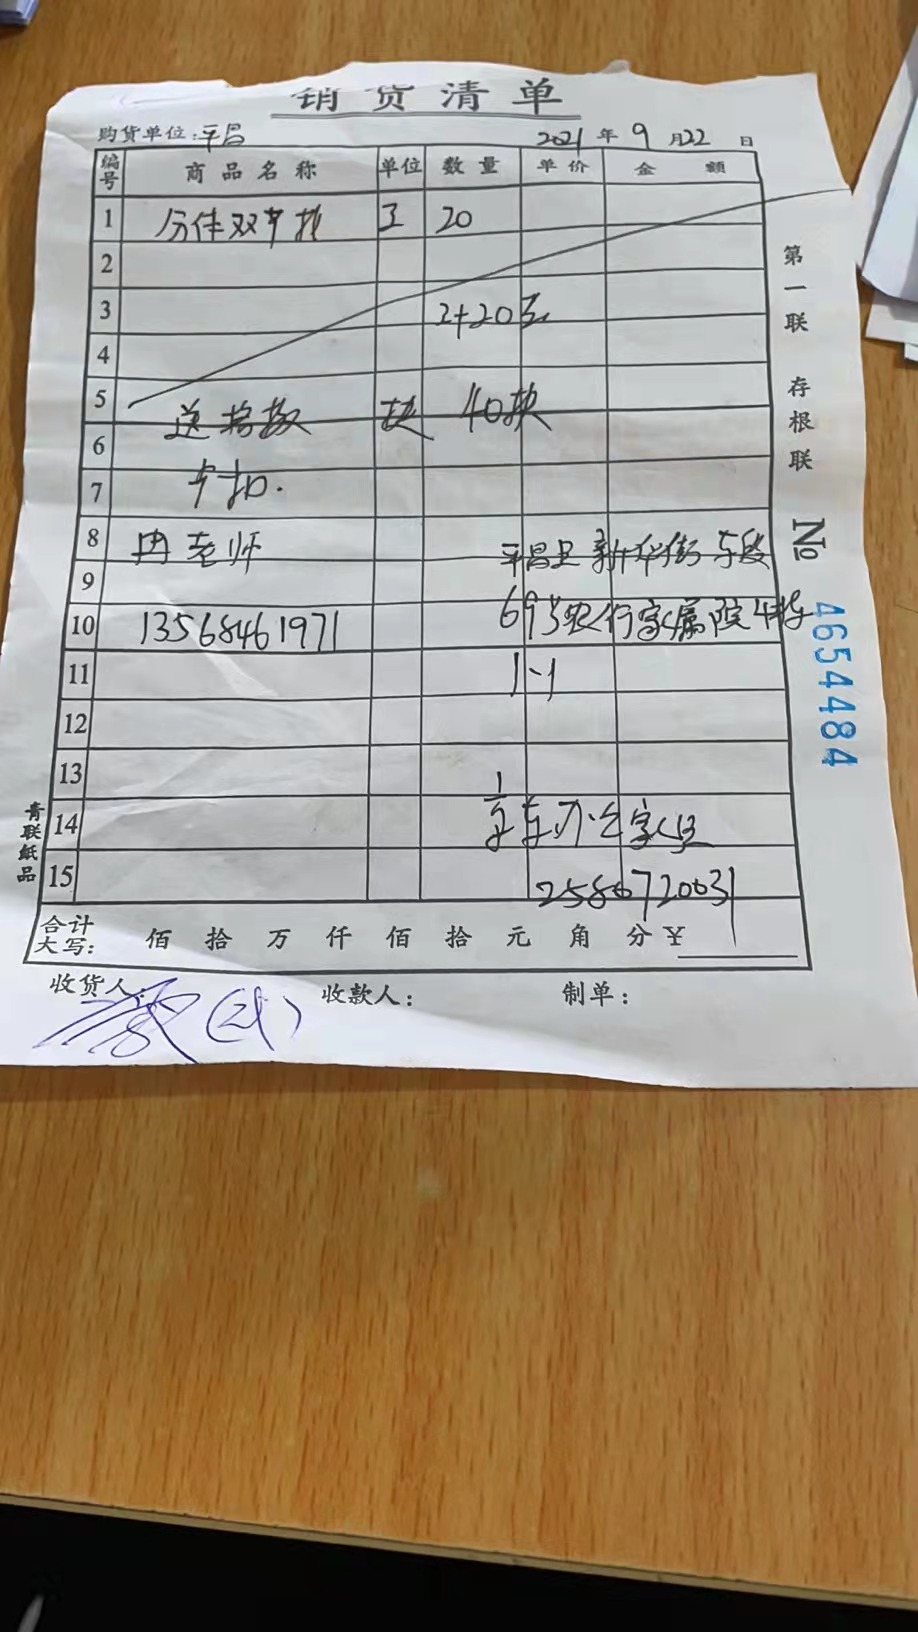 销货清单
购货单位:平昌 2021年9月22日
编号 商品名称 单位 数量 单价 金额
1 分体双平 20
2
3 2+20
4
5 送 块 40块
6
7 卡扣.
8 冉老师 平昌县新华街东段
9
10 13568461971 69号农行家属院4栋
11 1-1
12
13
14 东办公家具
15 2586720031
合计大写: 佰 拾 万 仟 佰 拾 元 角 分 ¥
收货人: 收款人: 制单:
第一联 存根联
№ 4654484
青联纸品